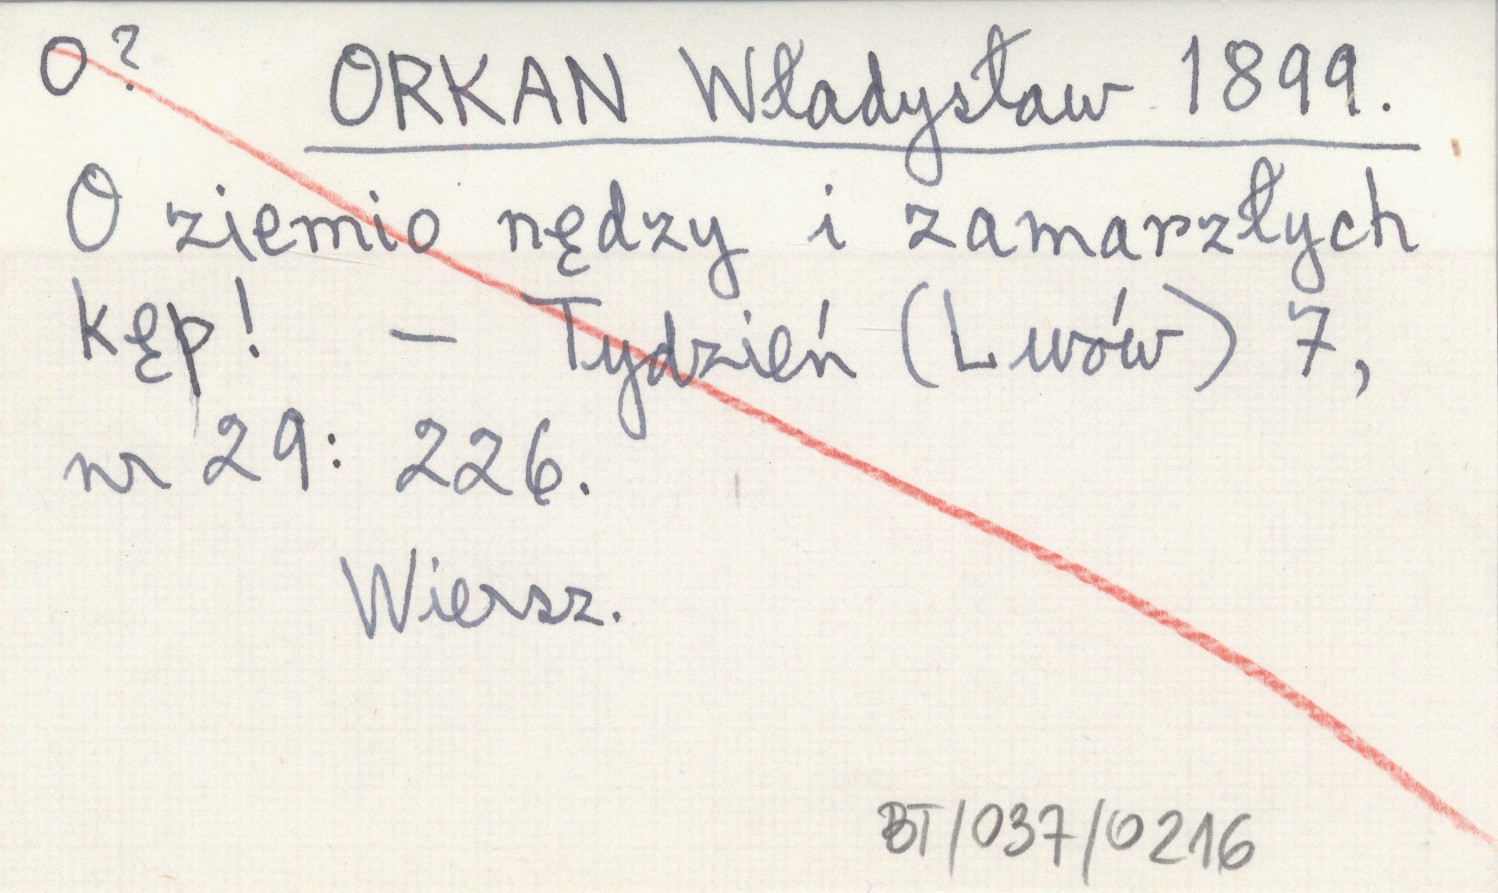 O? ORKAN Władysław 1899.
O ziemio nędzy i zamarzłych
kęp! – Tydzień (Lwów) 7,
nr 29: 226.
Wiersz.
BT/037/0216